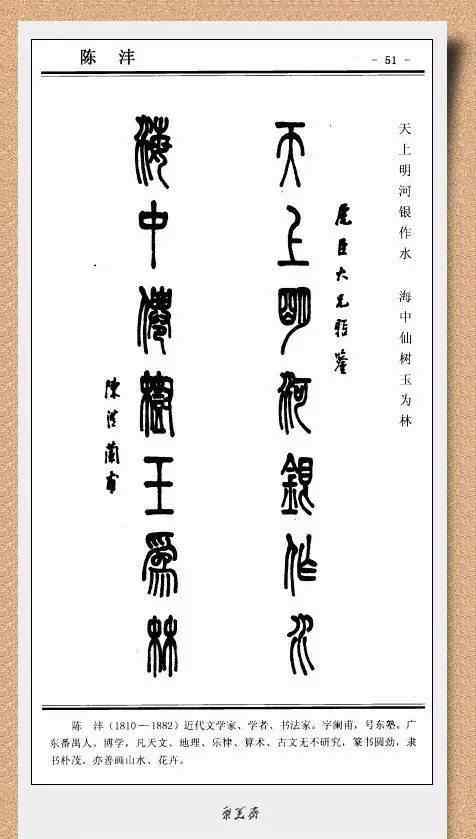 陈 沣
- 51 -
天上明河银作水 海中仙树玉为林
虎臣大兄雅鑒
天上朙河銀作水
海中僊樹玉爲林
陳澧蘭甫
陈 沣（1810—1882）近代文学家、学者、书法家。字澜甫，号东塾。广
东番禺人。博学，凡天文、地理、乐律、算术、古文无不研究，篆书圆劲，隶
书朴茂，亦善画山水、花卉。